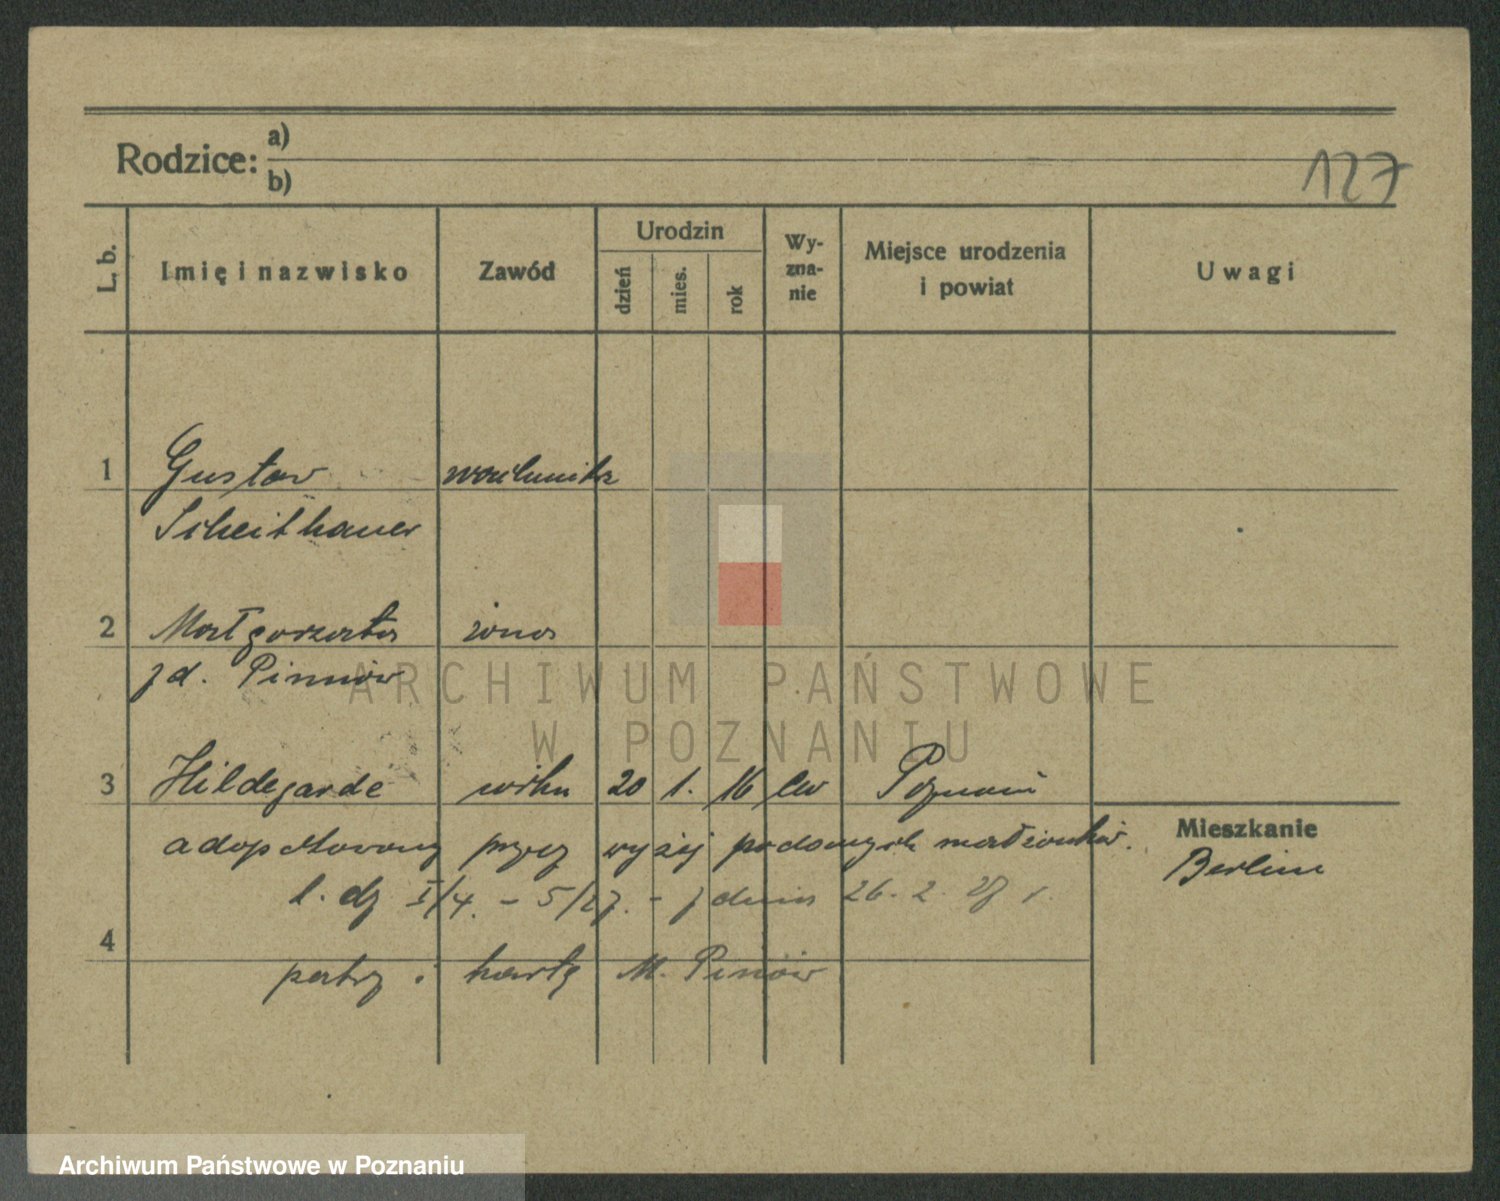 Rodzice:
a)
b)
127
L. b.
Imię i nazwisko
Zawód
Urodzin
dzień
mies.
rok
Wy-
zna-
nie
Miejsce urodzenia
i powiat
Uwagi
1 Gustav
Scheithauer
2 Małgorzata żona
zd. Pinnow
3 Hildegarde 20 1. 16 ew Poznań
adoptowany przez wyżej podanych małżonków.
l. dz I/4. - 5/27. - z dnia 26. 2. r.
4
patrz i kartę M. Pinow
Mieszkanie
Berlin
ARCHIWUM PAŃSTWOWE
W POZNANIU
Archiwum Państwowe w Poznaniu